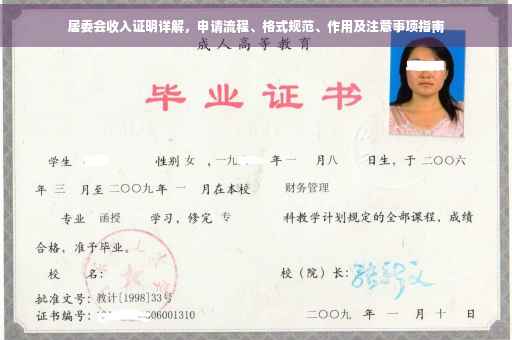 居委会收入证明详解，申请流程、格式规范、作用及注意事项指南
成人高等教育
毕业证书
学生 性别 女 ，一九 年 一 月 八 日生，于 二〇〇六
年 三 月至 二〇〇九 年 一 月在本校 财务管理
专业 函授 学习，修完 专 科教学计划规定的全部课程，成绩
合格，准予毕业。
校 名： 校（院）长：
批准文号：教计[1998]33号
证书编号： 06001310 二〇〇九 年 一 月 十 日